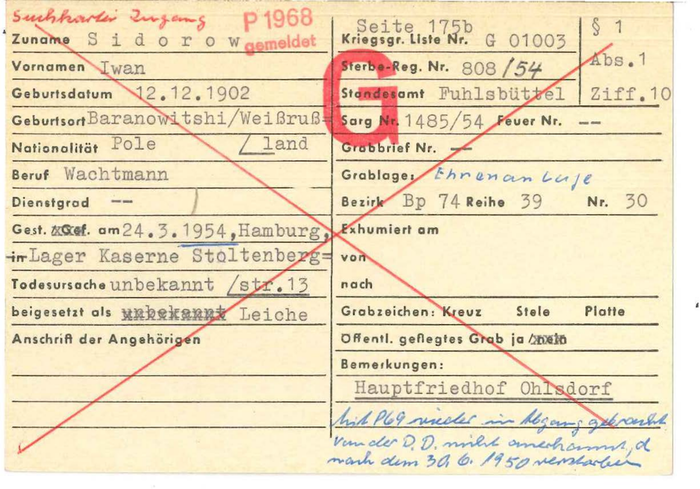 Suchkartei Zugang
P 1968
gemeldet
G
Zuname Sidorow
Vornamen Iwan
Geburtsdatum 12.12.1902
Geburtsort Baranowitshi/Weißruß=
Nationalität Pole /land
Beruf Wachtmann
Dienstgrad --
Gest. xGef. am 24.3.1954, Hamburg,
in Lager Kaserne Stoltenberg=
Todesursache unbekannt /str.13
beigesetzt als unbekannt Leiche
Anschrift der Angehörigen
Seite 175b
Kriegsgr. Liste Nr. G 01003
Sterbe-Reg. Nr. 808/54
Standesamt Fuhlsbüttel
§ 1
Abs.1
Ziff.10
Sarg Nr. 1485/54 Feuer Nr. --
Grabbrief Nr. --
Grablage: Ehrenanlage
Bezirk Bp 74 Reihe 39 Nr. 30
Exhumiert am
von
nach
Grabzeichen: Kreuz Stele Platte
Öffentl. gepflegtes Grab ja/nein
Bemerkungen:
Hauptfriedhof Ohlsdorf
Mit P69 wieder in Abgang gebracht
von der O.D. nicht anerkannt, d
nach dem 30.6.1950 verstorben